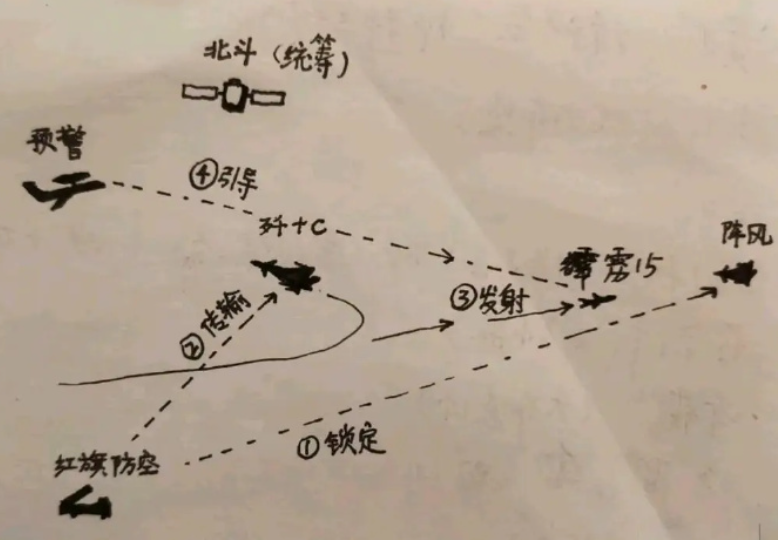 北斗(统筹)
预警
④引导
歼十C
阵风
霹雳15
③发射
②传输
红旗防空
①锁定